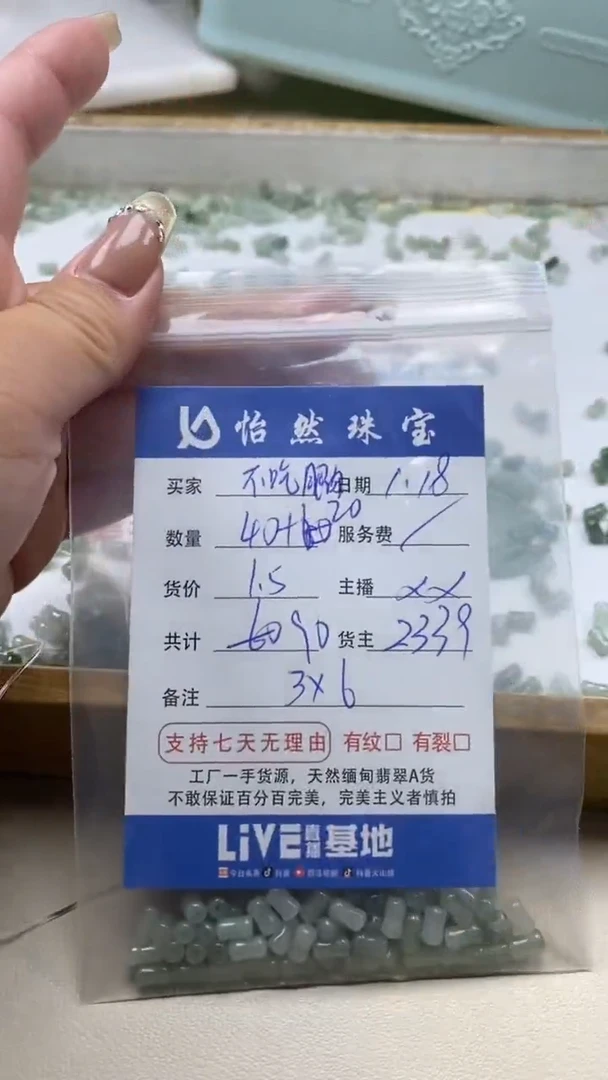 怡然珠宝
买家 不吃 日期 1.18
数量 40+20 服务费 /
货价 1.5 主播 xx
共计 90 货主 2339
备注 3x6
支持七天无理由 有纹□ 有裂□
工厂一手货源，天然缅甸翡翠A货
不敢保证百分百完美，完美主义者慎拍
LiVE直播基地
今日头条 抖音 西瓜视频 抖音火山版